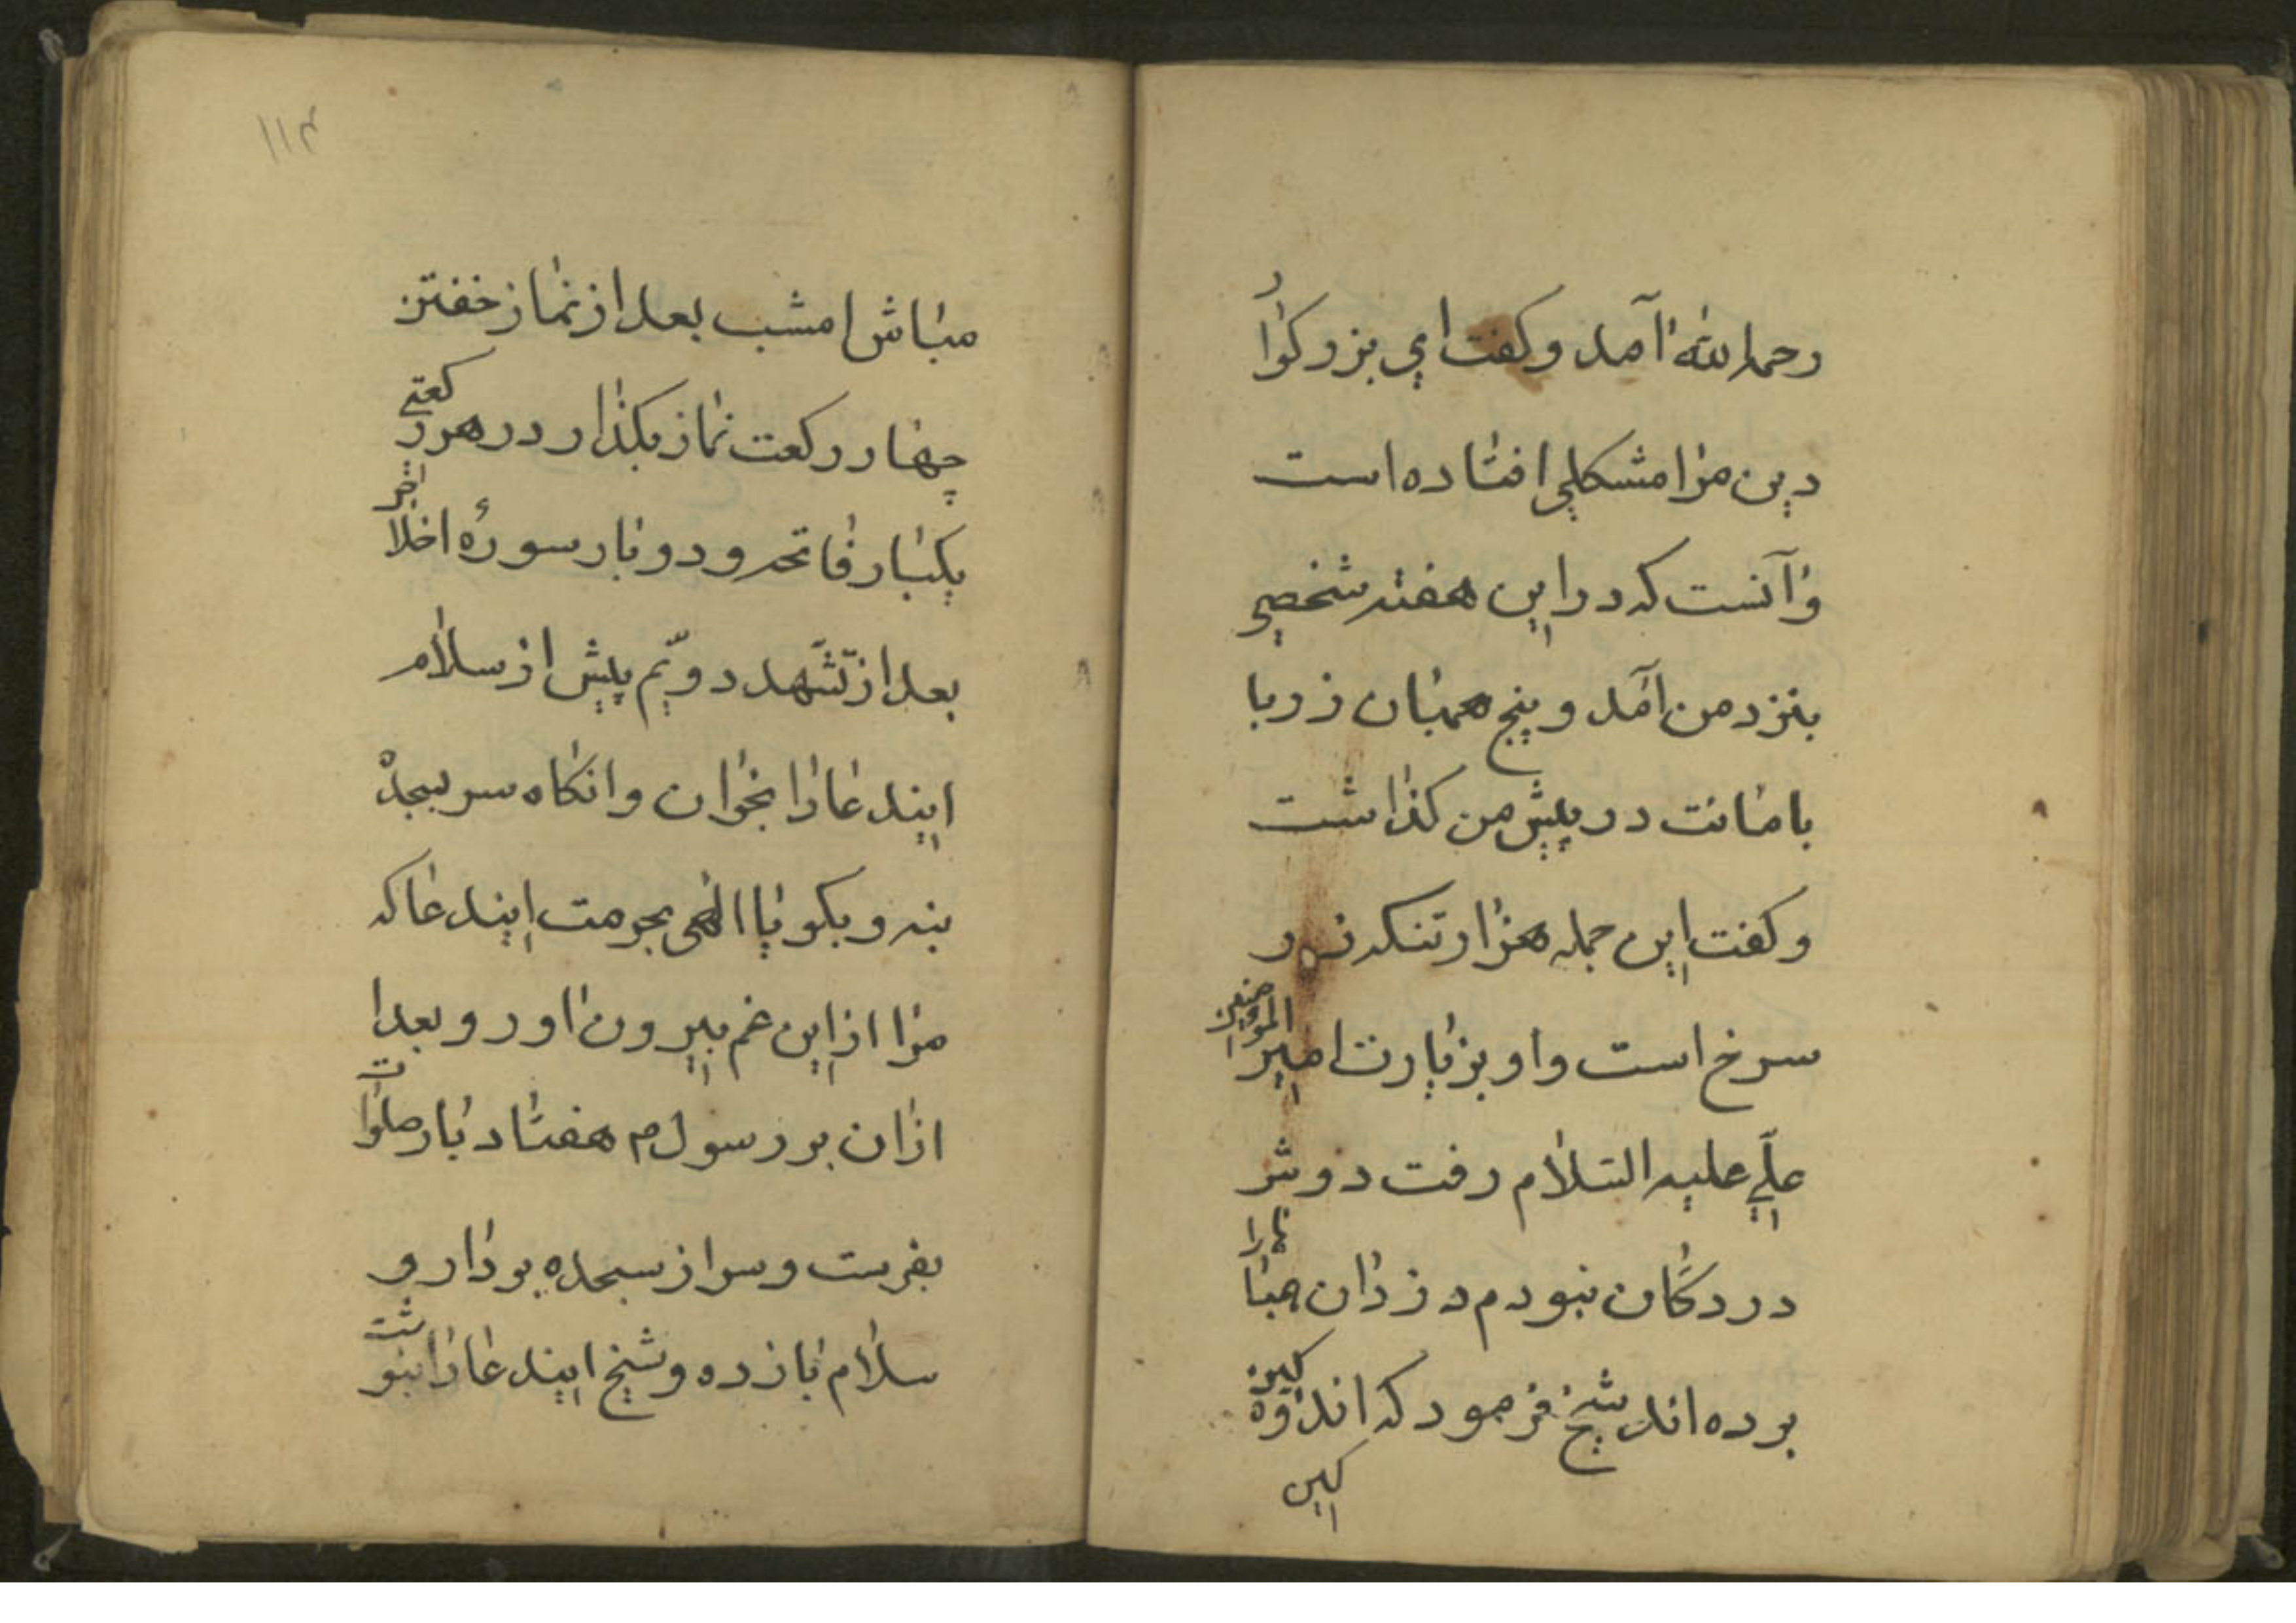 رحمه الله آمد و کفت ای بزرکوار
دین مرا مشکلی افتاده است
و آنست که در این هفته شخصی
بنزد من آمد و پنج همیان زر با
بامانت در پیش من کذاشت
و کفت این جمله هزار تنکه زر
سرخ است و او بزیارت امیر المؤمنین
علی علیه السلام رفت دوش
در دکان نبودم دزدان همیانها را
برده اند شیخ فرمود که اندوهکین
کین
۱۱۴
مباش امشب بعد از نماز خفتن
چهار رکعت نماز بکذار در هر رکعتی
یکبار فاتحه و دو بار سورهٔ اخلاص
بعد از تشهد دویم پیش از سلام
ایندعا را بخوان و انکاه سر بسجده
بنه و بکو یا الهی بحرمت ایندعا که
مرا از این غم بیرون اور و بعد ا
ازان بر رسول م هفتاد بار صلوات
بفرست و سر از سجده بردار و
سلام باز ده و شیخ ایندعا را بنوشت